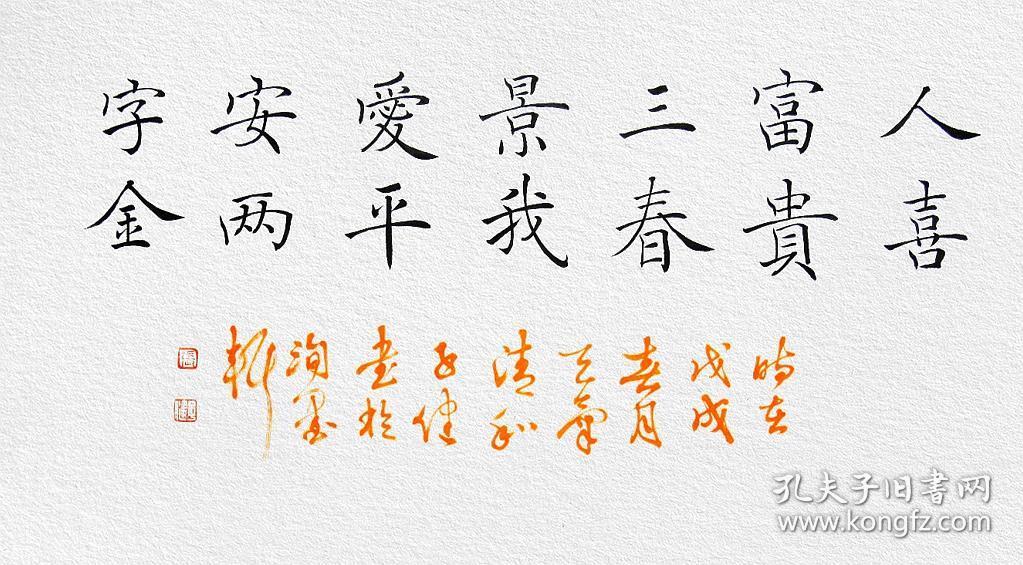 人喜
富貴
三春
景我
愛平
安两
字金
時在
戊戌
春月
天氣
清和
子健
書於
洵墨
軒
孔夫子旧書网
www.kongfz.com